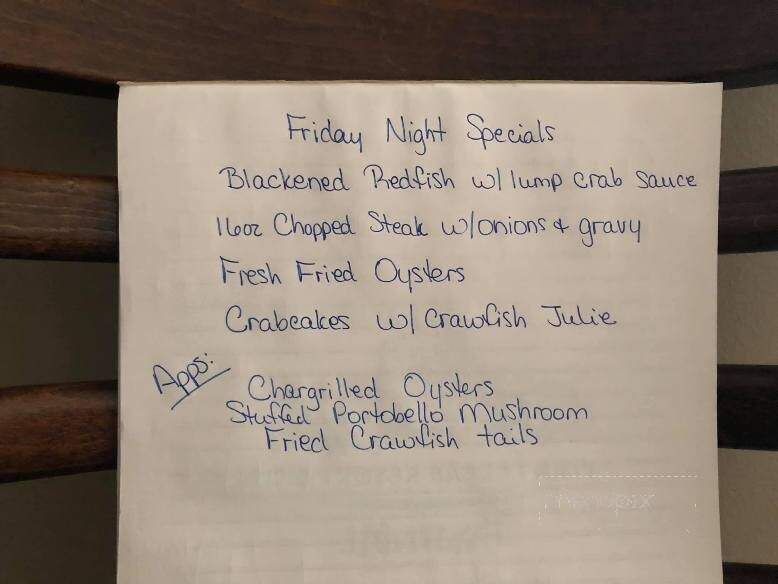 Friday Night Specials
Blackened Redfish w/ lump crab sauce
16oz Chopped Steak w/onions & gravy
Fresh Fried Oysters
Crabcakes w/ Crawfish Julie
Apps:
Chargrilled Oysters
Stuffed Portobello Mushroom
Fried Crawfish tails